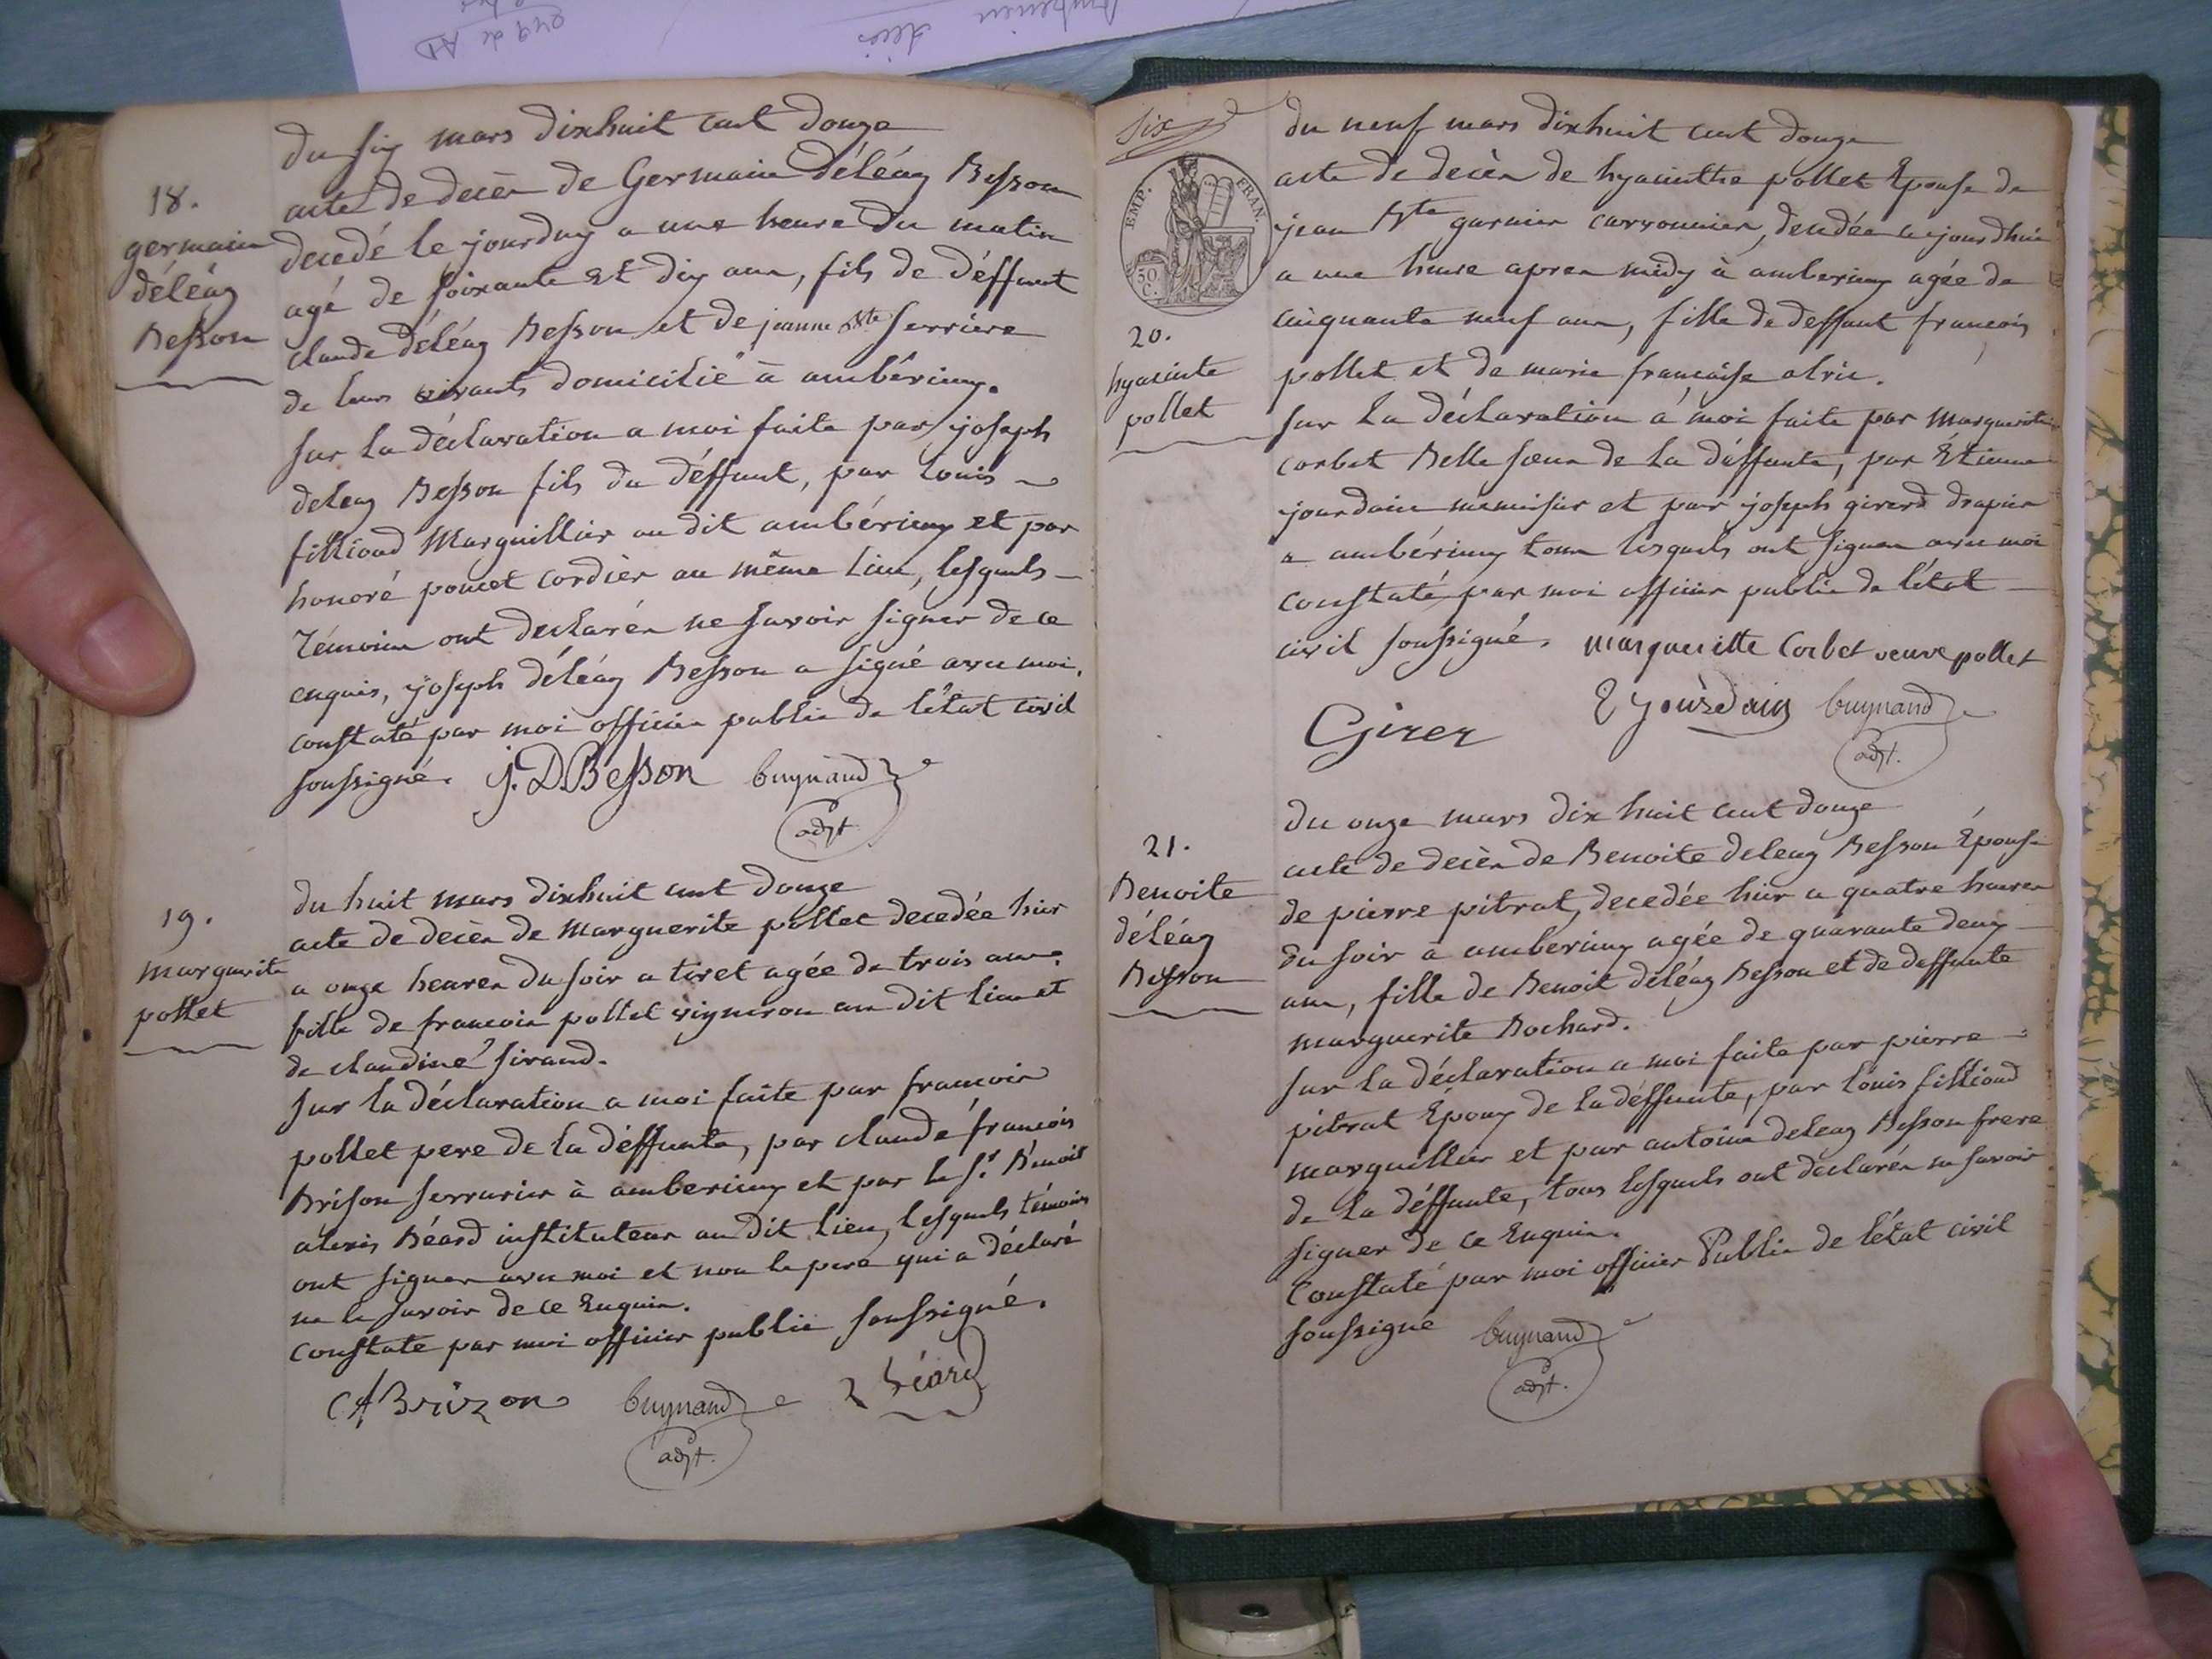 18.
germain
déléaz
Besson
du six mars dixhuit cent douze
acte de decès de Germain déléaz Besson
decedé le jourduy a une heure du matin
agé de soixante et dix ans, fils de déffunt
claude déléaz Besson et de jeanne Bte serriere
de leurs vivants domicilié à ambérieux.
sur la déclaration a moi faite par joseph
deleaz Besson fils du déffunt, par louis
fillioud Marguillier au dit ambérieux et par
honoré poncet cordier au même lieu, lesquels
témoins ont declarés ne savoir signer de ce
enquis, joseph déléaz Besson a signé avec moi.
constaté par moi officier public de l'état civil
soussigné. j. D. Besson buynand
adjt.
19.
marguerite
pollet
du huit mars dixhuit cent douze
acte de decès de Marguerite pollet decedée hier
a onze heures du soir a tiret agée de trois ans.
fille de francois pollet vigneron au dit lieu et
de claudine sirand.
sur la déclaration a moi faite par francois
pollet pere de la déffunte, par claude françois
Brison serrurier à amberieux et par le sr. Benoit
alexis Béard instituteur au dit lieu, lesquels témoins
ont signés avec moi et non le pere qui a déclaré
ne le savoir de ce Enquis.
constate par moi officier public soussigné.
Brizon buynand Béard
adjt.
six
EMP. FRAN.
50 C.
20.
hyacinte
pollet
du neuf mars dixhuit cent douze
acte de decès de hyacinthe pollet Epouse de
jean Bte garnier carronnier, decedée ce jourdhui
a une heure apres midy à amberieux agée de
cinquante neuf ans, fille de deffunt françois
pollet et de marie francaise alric.
sur la déclaration à moi faite par Marguerite
corbet Belle sœur de la déffunte, par Etienne
jourdain menuisier et par joseph girerd drapier
a ambérieux tous lesquels ont signés avec moi
constaté par moi officier public de l'état
civil soussigné. marguerite Corbet veuve pollet
E jourdain buynand
Girer
adjt.
21.
Benoite
déléaz
Besson
du onze mars dix huit cent douze
acte de decès de Benoite deleaz Besson Épouse
de pierre pitrat, decedée hier a quatre heures
du soir a amberieux agée de quarante deux
ans, fille de Benoit déléaz Besson et de deffunte
marguerite Bochard.
sur la déclaration a moi faite par pierre
pitrat Époux de la déffunte, par louis fillioud
marguillier et par antoine deleaz Besson frere
de la déffunte, tous lesquels ont declarés ne savoir
signer de ce Enquis.
Constaté par moi officier Public de l'état civil
soussigné buynand
adjt.